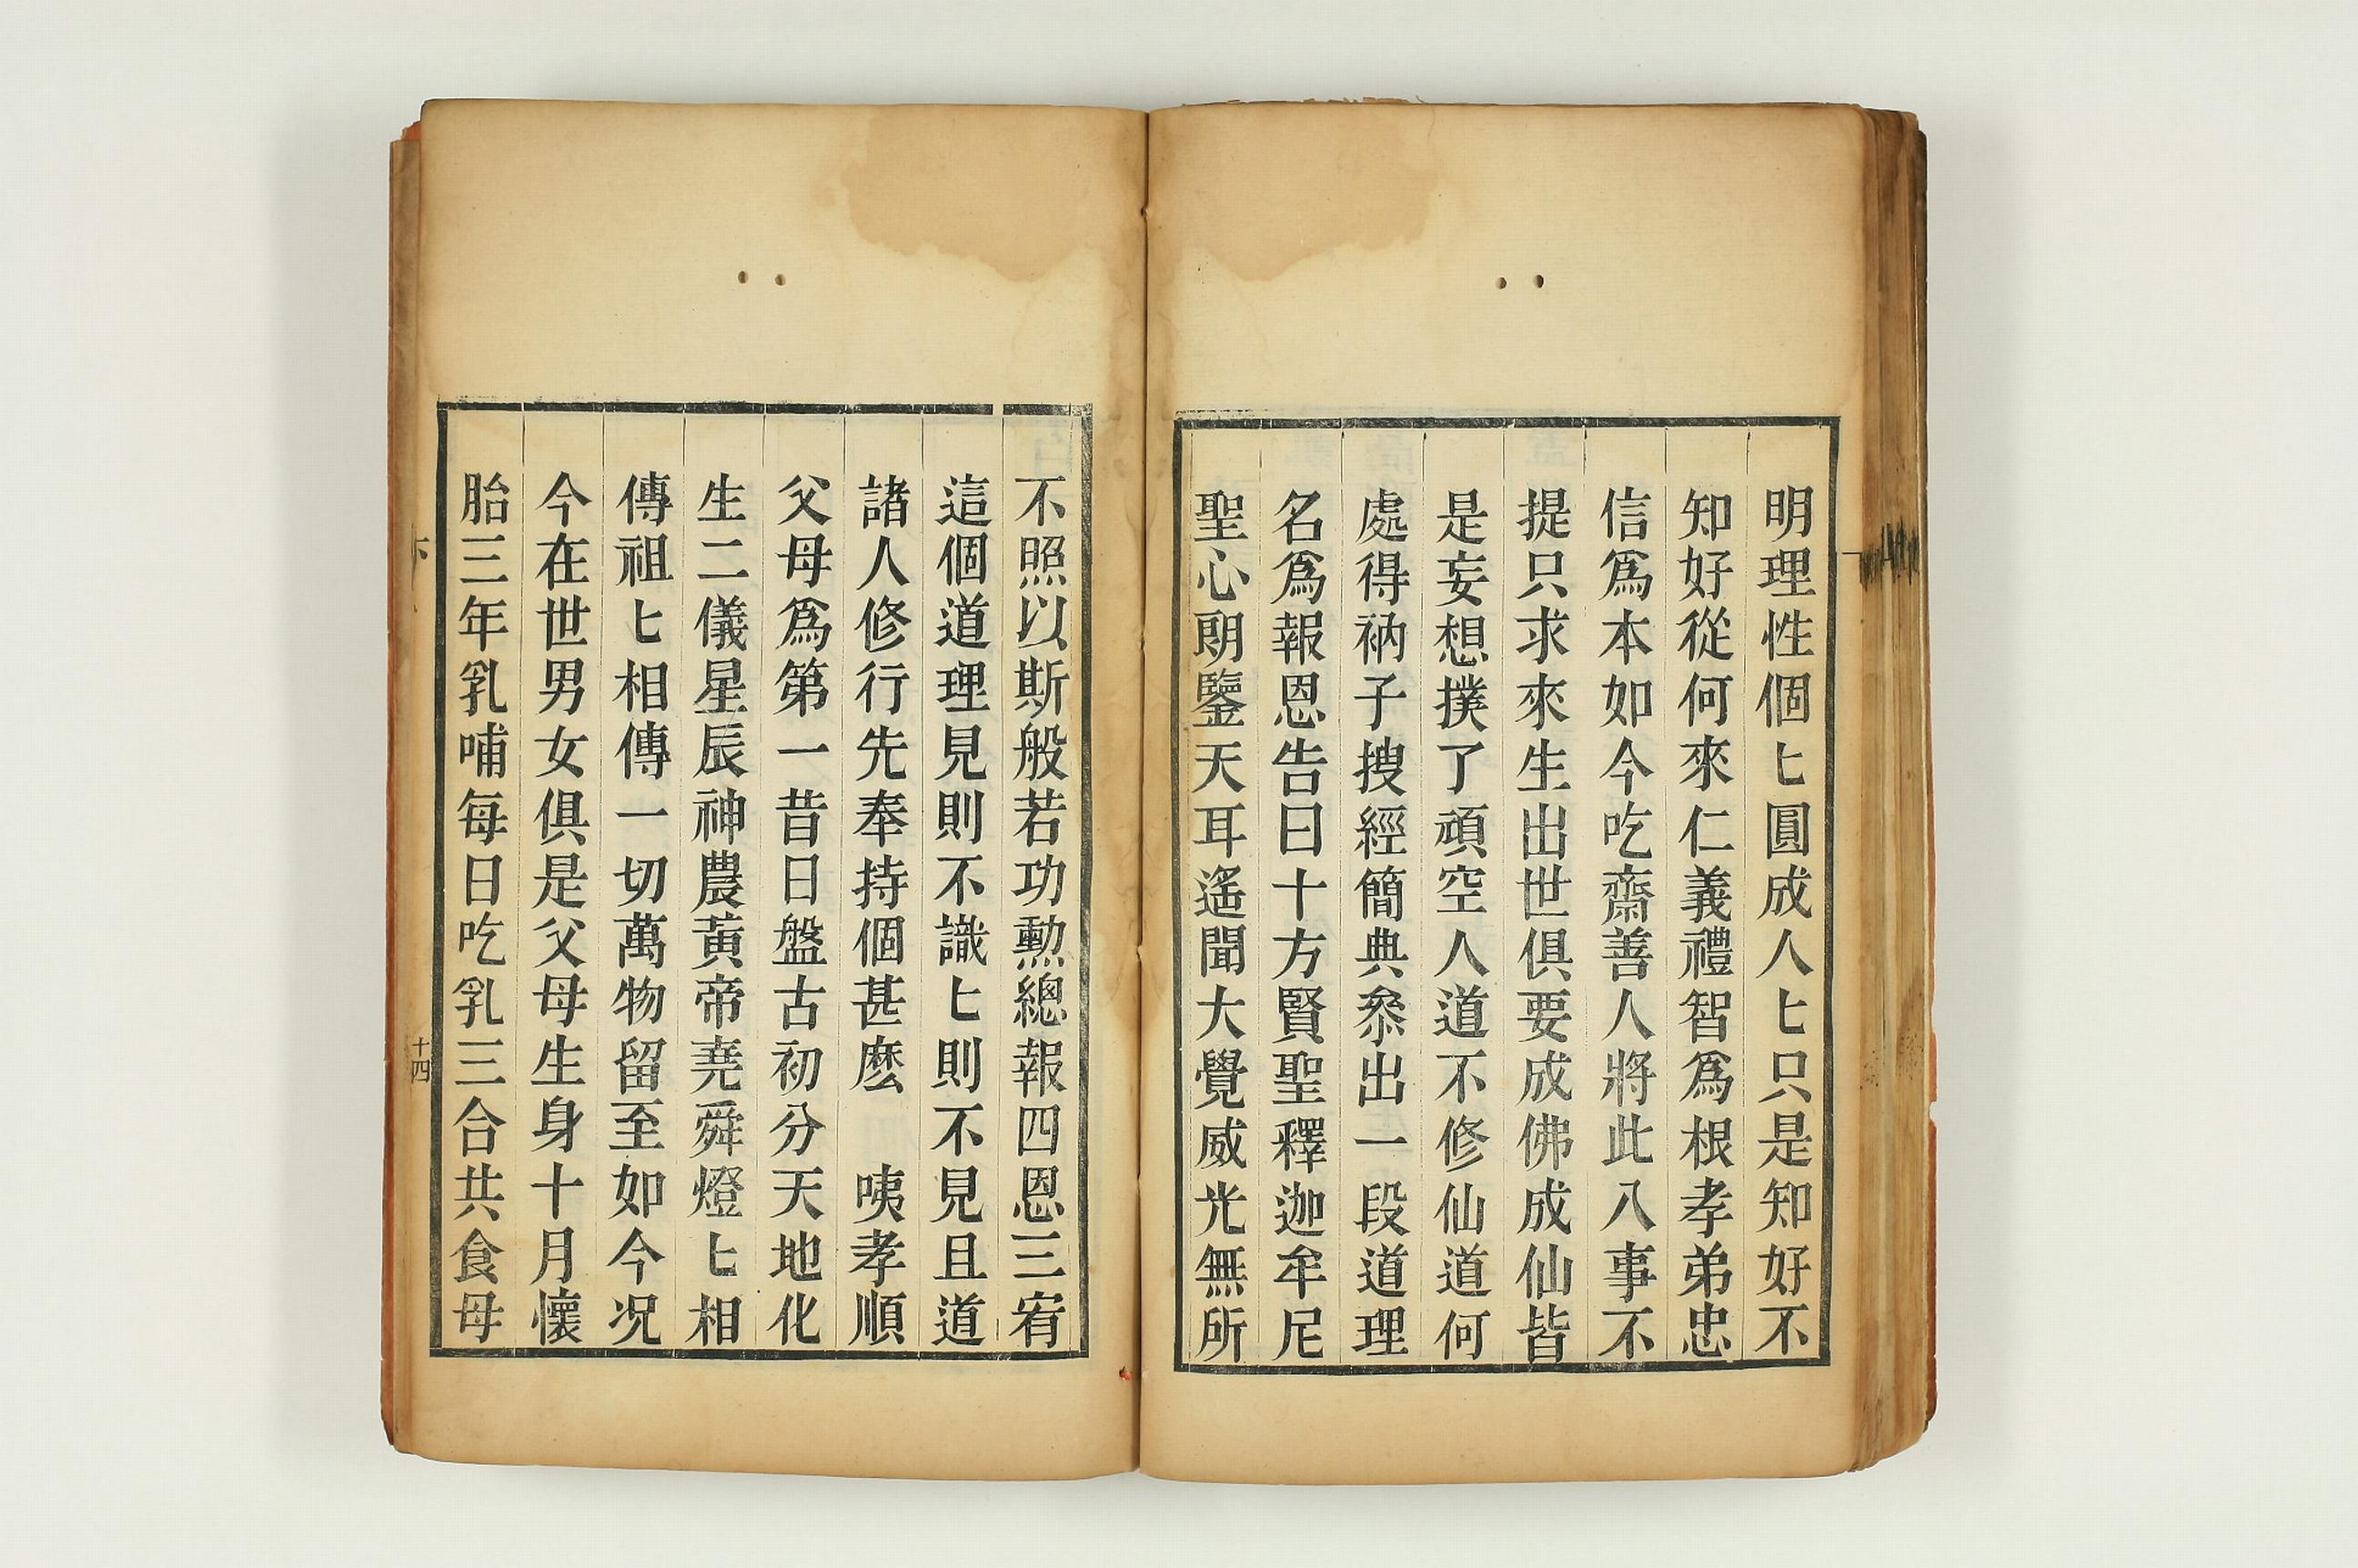 明理性個匕圓成人匕只是知好不
知好從何來仁義禮智爲根孝弟忠
信爲本如今吃齋善人將此八事不
提只求來生出世俱要成佛成仙皆
是妄想撲了頑空人道不修仙道何
處得衲子搜經簡典叅出一段道理
名爲報恩告曰十方賢聖釋迦牟尼
聖心朗鑒天耳遙聞大覺威光無所
不照以斯般若功勳總報四恩三宥
這個道理見則不識匕則不見且道
諸人修行先奉持個甚麽　咦孝順
父母爲第一昔日盤古初分天地化
生二儀星辰神農黃帝堯舜燈匕相
傳祖匕相傳一切萬物留至如今况
今在世男女俱是父母生身十月懷
胎三年乳哺每日吃乳三合共食母
十四